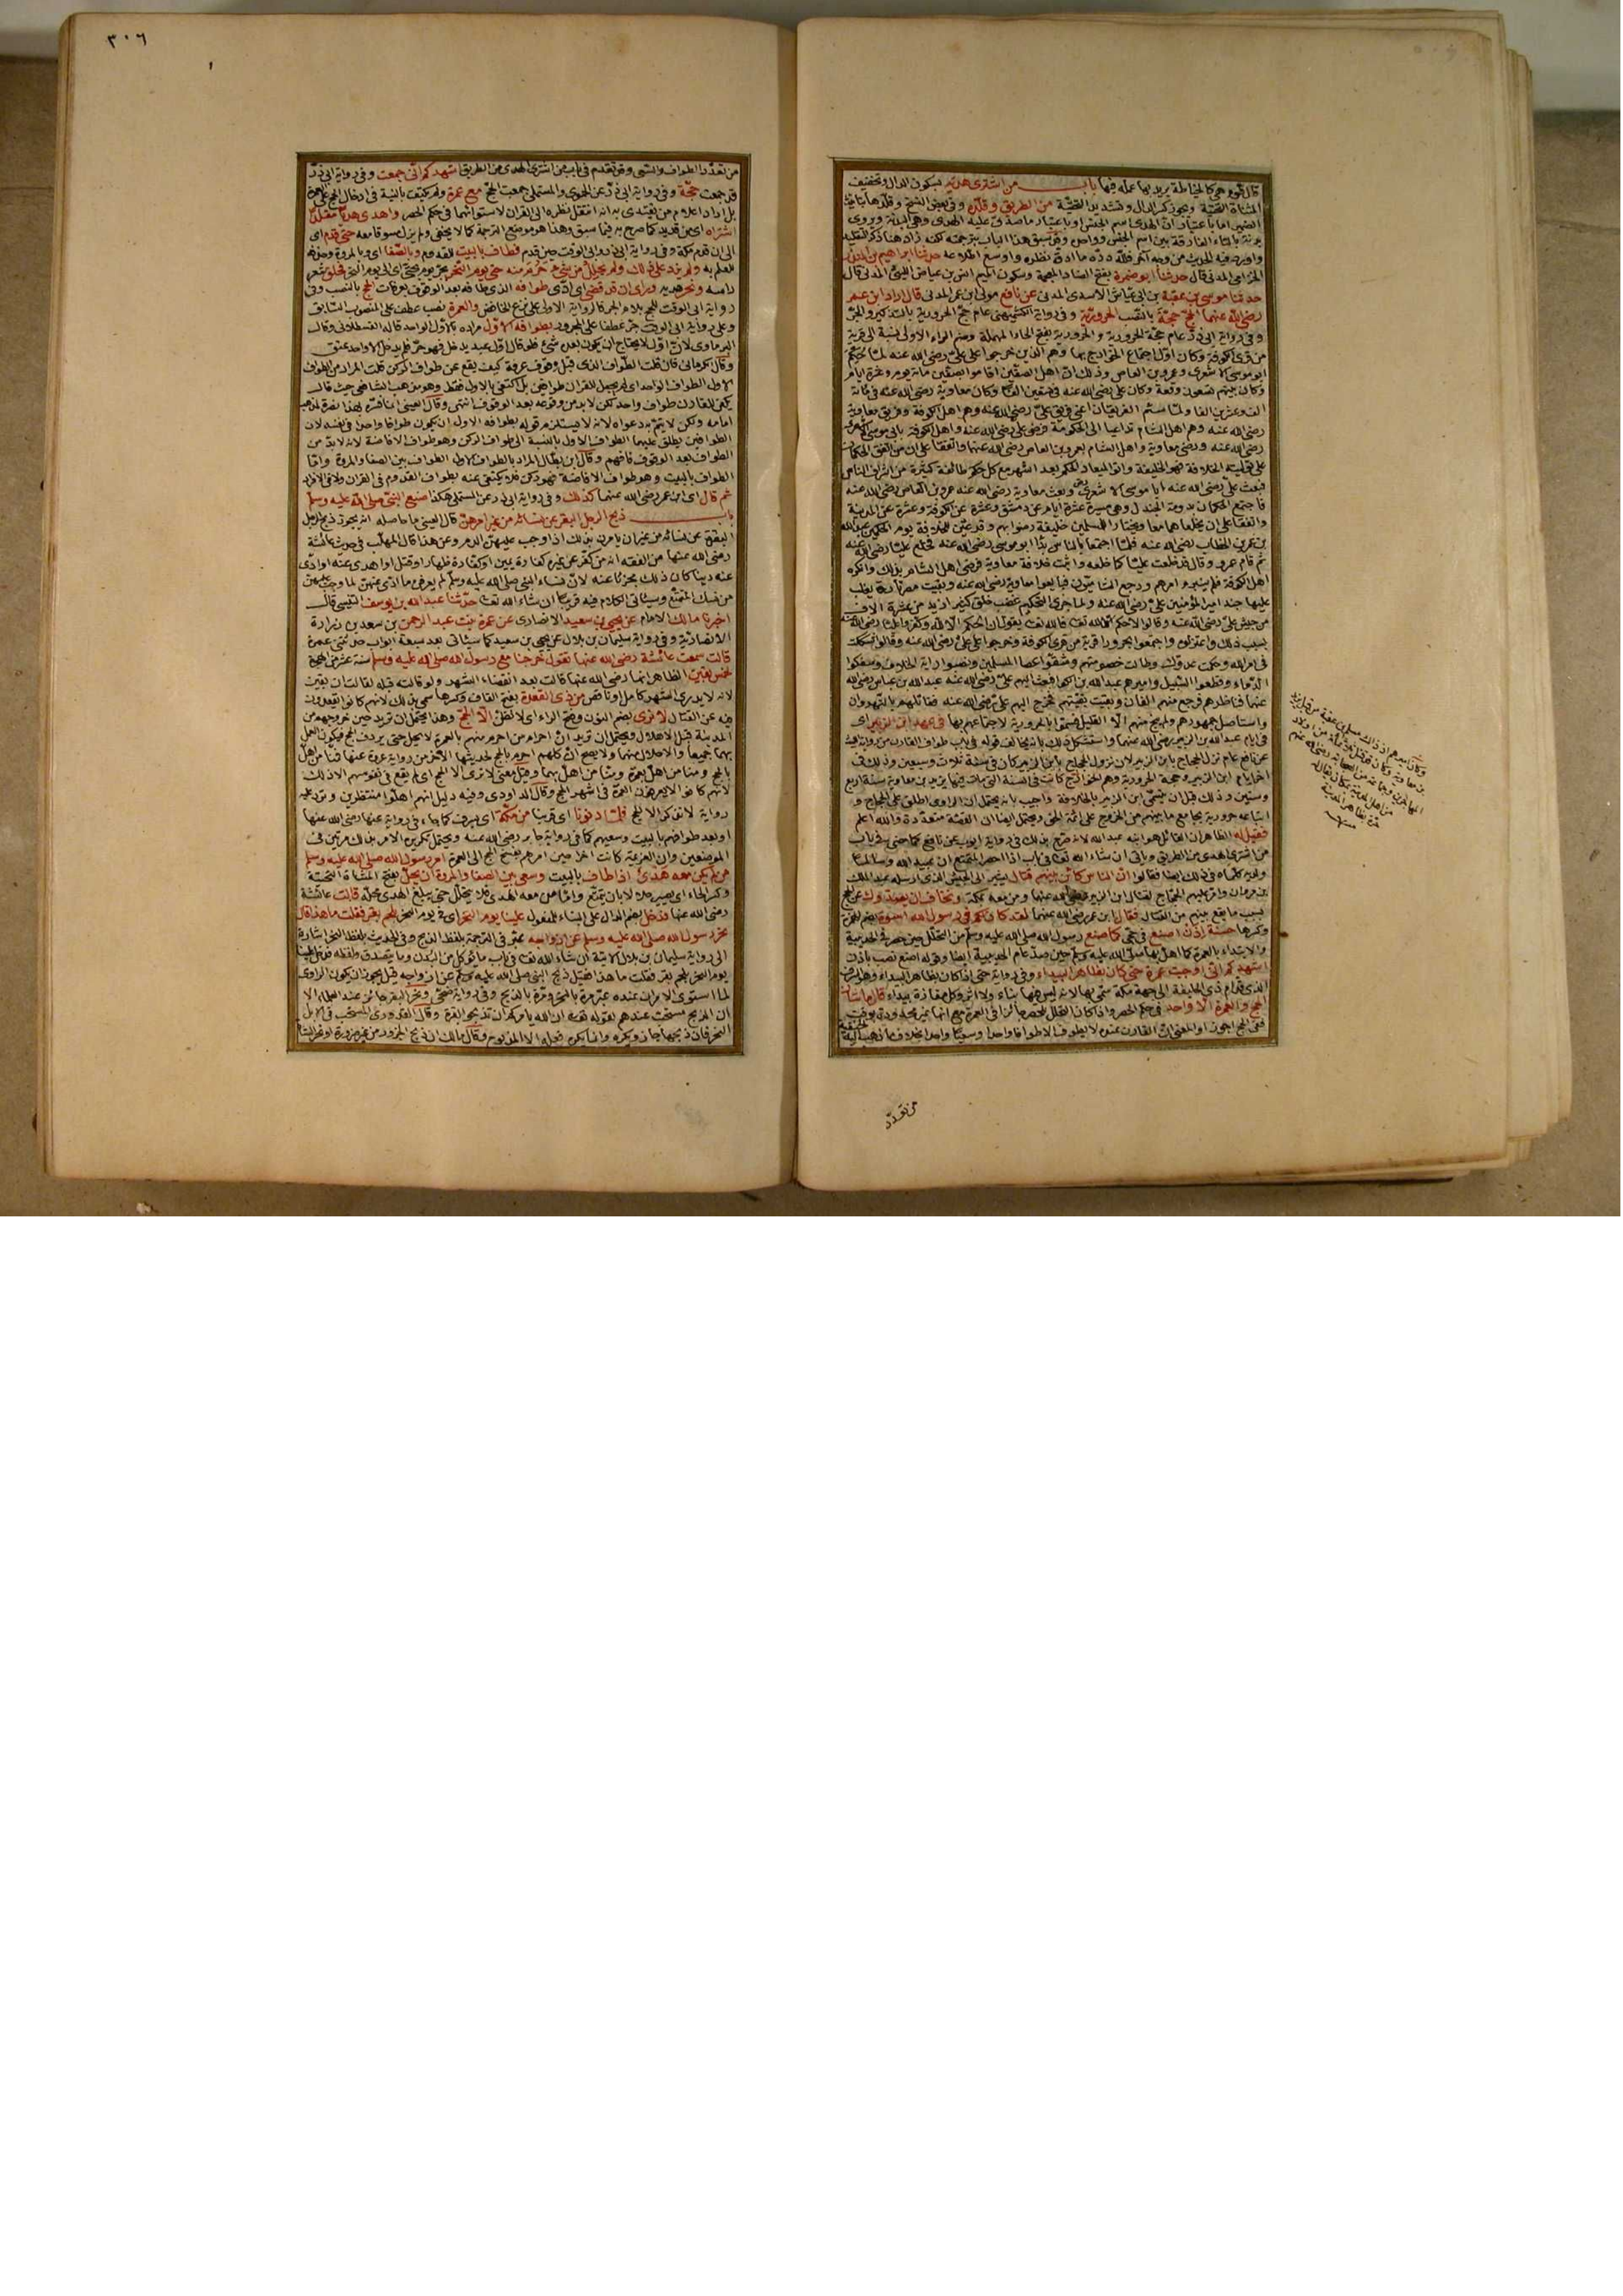 قال قوم هي كالخياطة يريد بها عمله فيها باب من اشترى هديه بسكون الدال وتخفيف
المثناة التحتية ويجوز كسر الدال وتشديد التحتية من الطريق وقلده وفي بعض النسخ وقلدها بتأنيث
الضمير اما باعتبار ان الهدي اسم الجنس او باعتبار ما صدق عليه الهدي وهي البدنة ويروى
بدنة بالتاء الفارقة بين اسم الجنس وواحده وقد سبق هذا الباب بترجمته لكنه زاد هنا ذكر التقليد
واورد فيه الحديث من وجه آخر فلله دره ما ادق نظره واوسع اطلاعه حدثنا ابراهيم بن المنذر
الحزامي المدني قال حدثنا ابو ضمرة بفتح الضاد المعجمة وسكون الميم انس بن عياض الليثي المدني قال
حدثنا موسى بن عقبة بن ابي عياش الاسدي المدني عن نافع مولى بن عمر المدني قال اراد ابن عمر
رضي الله عنهما الحج حجة بالنصب الحرورية وفي رواية الكشميهني عام حج الحرورية بالتذكير والجر
وفي رواية ابي ذر عام حجة الحرورية والحرورية بفتح الحاء المهملة وضم الراء الاولى نسبة الى قرية
من قرى الكوفة وكان اول اجتماع الخوارج بها وهم الذين خرجوا على علي رضي الله عنه لما حكم
ابو موسى الاشعري وعمرو بن العاص وذلك ان اهل الصفين اقاموا بصفين مائة يوم وعشرة ايام
وكان بينهم تسعون وقعة وكان علي رضي الله عنه في تسعين الفا وكان معاوية رضي الله عنه في مائة
الف وعشرين الفا ولما سئم الفريقان اعني فريق علي رضي الله عنه وهم اهل الكوفة وفريق معاوية
رضي الله عنه وهم اهل الشام تداعيا الى الحكومة فرضي علي رضي الله عنه واهل الكوفة بابي موسى الاشعري
رضي الله عنه ورضي معاوية واهل الشام بعمرو بن العاص رضي الله عنهما واتفقا على ان من اتفق الحكمان
على توليته الخلافة فهو الخليفة
فبعث علي رضي الله عنه ابا موسى الاشعري وبعث معاوية رضي الله عنه عمرو بن العاص رضي الله عنه
فاجتمع الحكمان بدومة الجندل وهي مسيرة عشرة ايام عن دمشق وعشرة عن الكوفة وعشرة عن المدينة
واتفقا على ان يخلعاهما معا ويختار المسلمين خليفة رضوا بهم وقد عين للخلافة يوم الحكمين عبد الله
بن عمر بن الخطاب رضي الله عنه فلما اجتمعا بالناس بدا ابو موسى رضي الله عنه فخلع عليا رضي الله عنه
ثم قام عمرو وقال قد خلعت عليا كما خلعه واثبت خلافة معاوية فرضي اهل الشام بذلك وانكره
اهل الكوفة فلم ينبرم امرهم ورجع الشاميون فبايعوا معاوية رضي الله عنه وبقيت مصر تارة يغلب
عليها جند امير المؤمنين علي رضي الله عنه ولما جرى التحكيم غضب خلق كثير ازيد من عشرة الاف
من جيش علي رضي الله عنه وقالوا لا حكم الا لله
بسبب ذلك واعتزلوه واجتمعوا بحرورا قرية من قرى الكوفة وخرجوا على علي رضي الله عنه وقالوا شككت
في امر الله وحكمت عدوك وطالت خصومتهم وشقوا عصا المسلمين ونصبوا راية الخلاف وسفكوا
الدماء وقطعوا السبيل واميرهم عبد الله بن الكوا فبعث اليهم علي رضي الله عنه عبد الله بن عباس رضي الله
عنهما فناظرهم فرجع منهم الفان وبقيت بقيتهم فخرج اليهم علي رضي الله عنه فقاتلهم بالنهروان
واستاصل جمهورهم ولم ينج منهم الا القليل فسموا بالحرورية لاجتماعهم بها في عهد ابن الزبير اي
في ايام عبد الله بن الزبير رضي الله عنهما واستشكل ذلك بانه يخالف قوله في باب طواف القارن من رواية الليث
عن نافع عام نزل الحجاج بابن الزبير لان نزول الحجاج بابن الزبير كان في سنة ثلاث وسبعين وذلك في
اخر ايام ابن الزبير وحجة الحرورية وهم الخوارج كانت في السنة التي مات فيها يزيد بن معاوية سنة اربع
وستين وذلك قبل ان يتسمى ابن الزبير بالخلافة واجيب بانه يحتمل ان الراوي اطلق على الحجاج و
اتباعه حرورية بجامع ما بينهم من الخروج على ائمة الحق ويحتمل ايضا ان القصة متعددة والله اعلم
فقيل له الظاهر ان القائل هو ابنه عبد الله لانه صرح بذلك في رواية ايوب عن نافع كما مضى في باب
من اشترى هدي من الطريق وياتي ان شاء الله تعالى في باب اذا احصر المتمتع ان عبيد الله وسالما
ولديه كلماه في ذلك ايضا فقالوا ان الناس كائن بينهم قتال يشير الى الجيش الذي ارسله عبد الملك
بن مروان وامر عليهم الحجاج لقتال ابن الزبير رضي الله عنهما ومن معه بمكة ونخاف ان يصدوك عن الحج
بسبب ما يقع بينهم من القتال فقال ابن عمر رضي الله عنهما لقد كان لكم في رسول الله اسوة بضم الهمزة
وكسرها حسنة اذن اصنع في حجي كما صنع رسول الله صلى الله عليه وسلم من التحلل حين حصر في الحديبية
والابتداء بالعمرة كما اهل بها صلى الله عليه وسلم حين صد عام الحديبية ايضا وقوله اصنع نصب باذن
اشهدكم اني اوجبت عمرة حتى كان بظاهر البيداء وفي رواية حتى اذا كان بظاهر البيداء وهو الشرف
الذي قدام ذي الحليفة الى جهة مكة سمي بها لانه ليس فيها بناء ولا اثر وكل مفازة بيداء قال ما شأن
الحج والعمرة الا واحد في حكم الحصر واذا كان التحلل للحصر جائزا في العمرة مع انها غير محدودة بوقت
ففي الحج اجوز او المعنى ان القارن عنده لا يطوف الا طوافا واحدا وسعيا واحدا بخلاف ما ذهب اليه الحنفية
من تعدد
وكان اميرهم اذ ذاك مسلم بن عقبة من قبل يزيد
بن معاوية
من اهل المدينة بمكان يقال له
حرة بظاهر المدينة
منه
٣٠٦
من تعدد الطواف والسعي وقد تقدم في باب من اشترى الهدي من الطريق اشهدكم اني جمعت وفي رواية ابي ذر
قد جمعت حجة وفي رواية ابي ذر عن الحموي والمستملي جمعت الحج مع عمرة ولم يكتف بالنية في ادخال الحج على العمرة
بل اراد اعلام من يقتدي به انه انتقل نظره الى القران لاستوائهما في حكم الحصر واهدى هديا مقلدا
اشتراه اي من قديد كما صرح به فيما سبق وهذا هو موضع الترجمة كما لا يخفى ولم يزل مسوقا معه حتى قدم اي
الى ان قدم مكة وفي رواية ابي ذر وابي الوقت حين قدم فطاف بالبيت للقدوم وبالصفا اي وبالمروة وحذفه
للعلم به ولم يزد على ذلك ولم يحلل من شيء حرم منه حتى يوم النحر بجر يوم بحتى اي الى يوم النحر فحلق شعر
راسه ونحر هديه وراى ان قد قضى اي ادى طوافه الذي طافه بعد الوقوف بعرفات الحج بالنصب وفي
رواية ابي الوقت للحج بلام الجر كالرواية الاولى على نزع الخافض والعمرة نصب عطف على المنصوب السابق
وعلى رواية ابي الوقت جر عطفا على المجرور بطوافه الاول مراده بالاول الواحد قاله القسطلاني وقال
البرماوي لان اول لا يحتاج ان يكون بعده شيء فلو قال اول عبد يدخل فهو حر فلم يدخل الا واحد عتق
وقال الكرماني فان قلت الطواف الذي قبل وقوف عرفة كيف يقع عن طواف الركن قلت المراد من الطواف
الاول الطواف الواحد اي لم يجعل للقران طوافين بل اكتفى بالاول فقط وهو مذهب الشافعي حيث قال
يكفي للقارن طواف واحد لكن لا بد من وقوعه بعد الوقوف انتهى وقال العيني انما فسره بهذا نصرة لمذهب
امامه ولكن لا يتم به دعواه لانه لا يستلزم قوله بطوافه الاول ان يكون طوافا واحدا في نفسه لان
الطوافين يطلق عليهما الطواف الاول بالنسبة الى طواف الركن وهو طواف الافاضة لانه لا بد من
الطواف بعد الوقوف فافهم وقال ابن بطال المراد بالطواف الاول الطواف بين الصفا والمروة واما
الطواف بالبيت وهو طواف الافاضة فهو ركن فلا يكتفى عنه بطواف القدوم في القران ولا في الافراد
ثم قال اي ابن عمر رضي الله عنهما كذلك وفي رواية ابي ذر عن المستملي هكذا صنع النبي صلى الله عليه وسلم
باب ذبح الرجل البقر عن نسائه من غير امرهن قال العيني ما حاصله انه يجوز ذبح الرجل
البقر عن نسائه من غير ان يامرنه بذلك اذا وجب عليهن الدم وعن هذا قال المهلب في حديث عائشة
رضي الله عنها من الفقه انه من كفر عن غيره كفارة يمين او كفارة ظهار او قتل او اهدى عنه او ادى
عنه دينا كان ذلك مجزئا عنه لان نساء النبي صلى الله عليه وسلم لم يعرفن ما ادى عنهن لما وجب عليهن
من نسك التمتع وسياتي الكلام فيه قريبا ان شاء الله تعالى حدثنا عبد الله بن يوسف التنيسي قال
اخبرنا مالك الامام عن يحيى بن سعيد الانصاري عن عمرة بنت عبد الرحمن بن سعد بن زرارة
الانصارية وفي رواية سليمان بن بلال عن يحيى بن سعيد كما سياتي بعد سبعة ابواب حدثتني عمرة
قالت سمعت عائشة رضي الله عنها تقول خرجنا مع رسول الله صلى الله عليه وسلم سنة عشر من الهجرة
لخمس بقين الظاهر انها رضي الله عنها قالت بعد انقضاء الشهر ولو قالته قبله لقالت ان بقين
لانه لا يدرى الشهر كامل او ناقص من ذي القعدة بفتح القاف وكسرها سمي بذلك لانهم كانوا يقعدون
فيه عن القتال لا نرى بضم النون وفتح الراء اي لا نظن الا الحج وهذا يحتمل ان تريد حين خروجهم من
المدينة قبل الاهلال ويحتمل ان تريد ان احرام من احرم منهم بالعمرة لا يحل حتى يردف الحج فيكون العمل
بهما جميعا والاحلال منهما ولا يصح ان كلهم احرم بالحج لحديثها الاخر من رواية عروة عنها فمنا من اهل
بالحج ومنا من اهل بعمرة ومنا من اهل بهما وقيل معنى لا نرى الا الحج اي لم يقع في نفوسهم الا ذلك
لانهم كانوا لا يعرفون العمرة في اشهر الحج وقال الداودي وفيه دليل انهم اهلوا منتظرين وترد عليه
رواية لا نذكر الا الحج فلما دنونا اي قربنا من مكة اي بسرف كما جاء في رواية عنها رضي الله عنها
او بعد طوافهم بالبيت وسعيهم كما في رواية جابر رضي الله عنه ويحتمل تكريره الامر بذلك مرتين في
الموضعين وان العزيمة كانت اخرا حين امرهم بفسخ الحج الى العمرة امر رسول الله صلى الله عليه وسلم
من لم يكن معه هدي اذا طاف بالبيت وسعى بين الصفا والمروة ان يحل بفتح المثناة التحتية
وكسر الحاء اي يصير حلالا بان يتمتع واما من معه الهدي فلا يتحلل حتى يبلغ الهدي محله قالت عائشة
رضي الله عنها فدخل بضم الدال على البناء للمفعول علينا يوم النحر اي في يوم النحر بلحم بقر فقلت ما هذا قال
نحر رسول الله صلى الله عليه وسلم عن ازواجه عبر في الترجمة بلفظ الذبح وفي الحديث بلفظ النحر اشارة
الى رواية سليمان بن بلال الاتية ان شاء الله تعالى في باب ما يؤكل من البدن وما يتصدق ولفظه فدخل علينا
يوم النحر بلحم بقر فقلت ما هذا فقيل ذبح النبي صلى الله عليه وسلم عن ازواجه قيل يجوز ان يكون الراوي
لما استوى الامران عنده عبر مرة بالنحر ومرة بالذبح وفي رواية ضحى ونحر البقر جائز عند العلماء الا
ان الذبح مستحب عندهم لقوله تعالى ان الله يامركم ان تذبحوا بقرة وقال القدوري المستحب في الابل
النحر فان ذبحها جاز ويكره وانما يكره فعله لا المذبوح وقال مالك ان ذبح الجزور من غير ضرورة او نحر الشاة